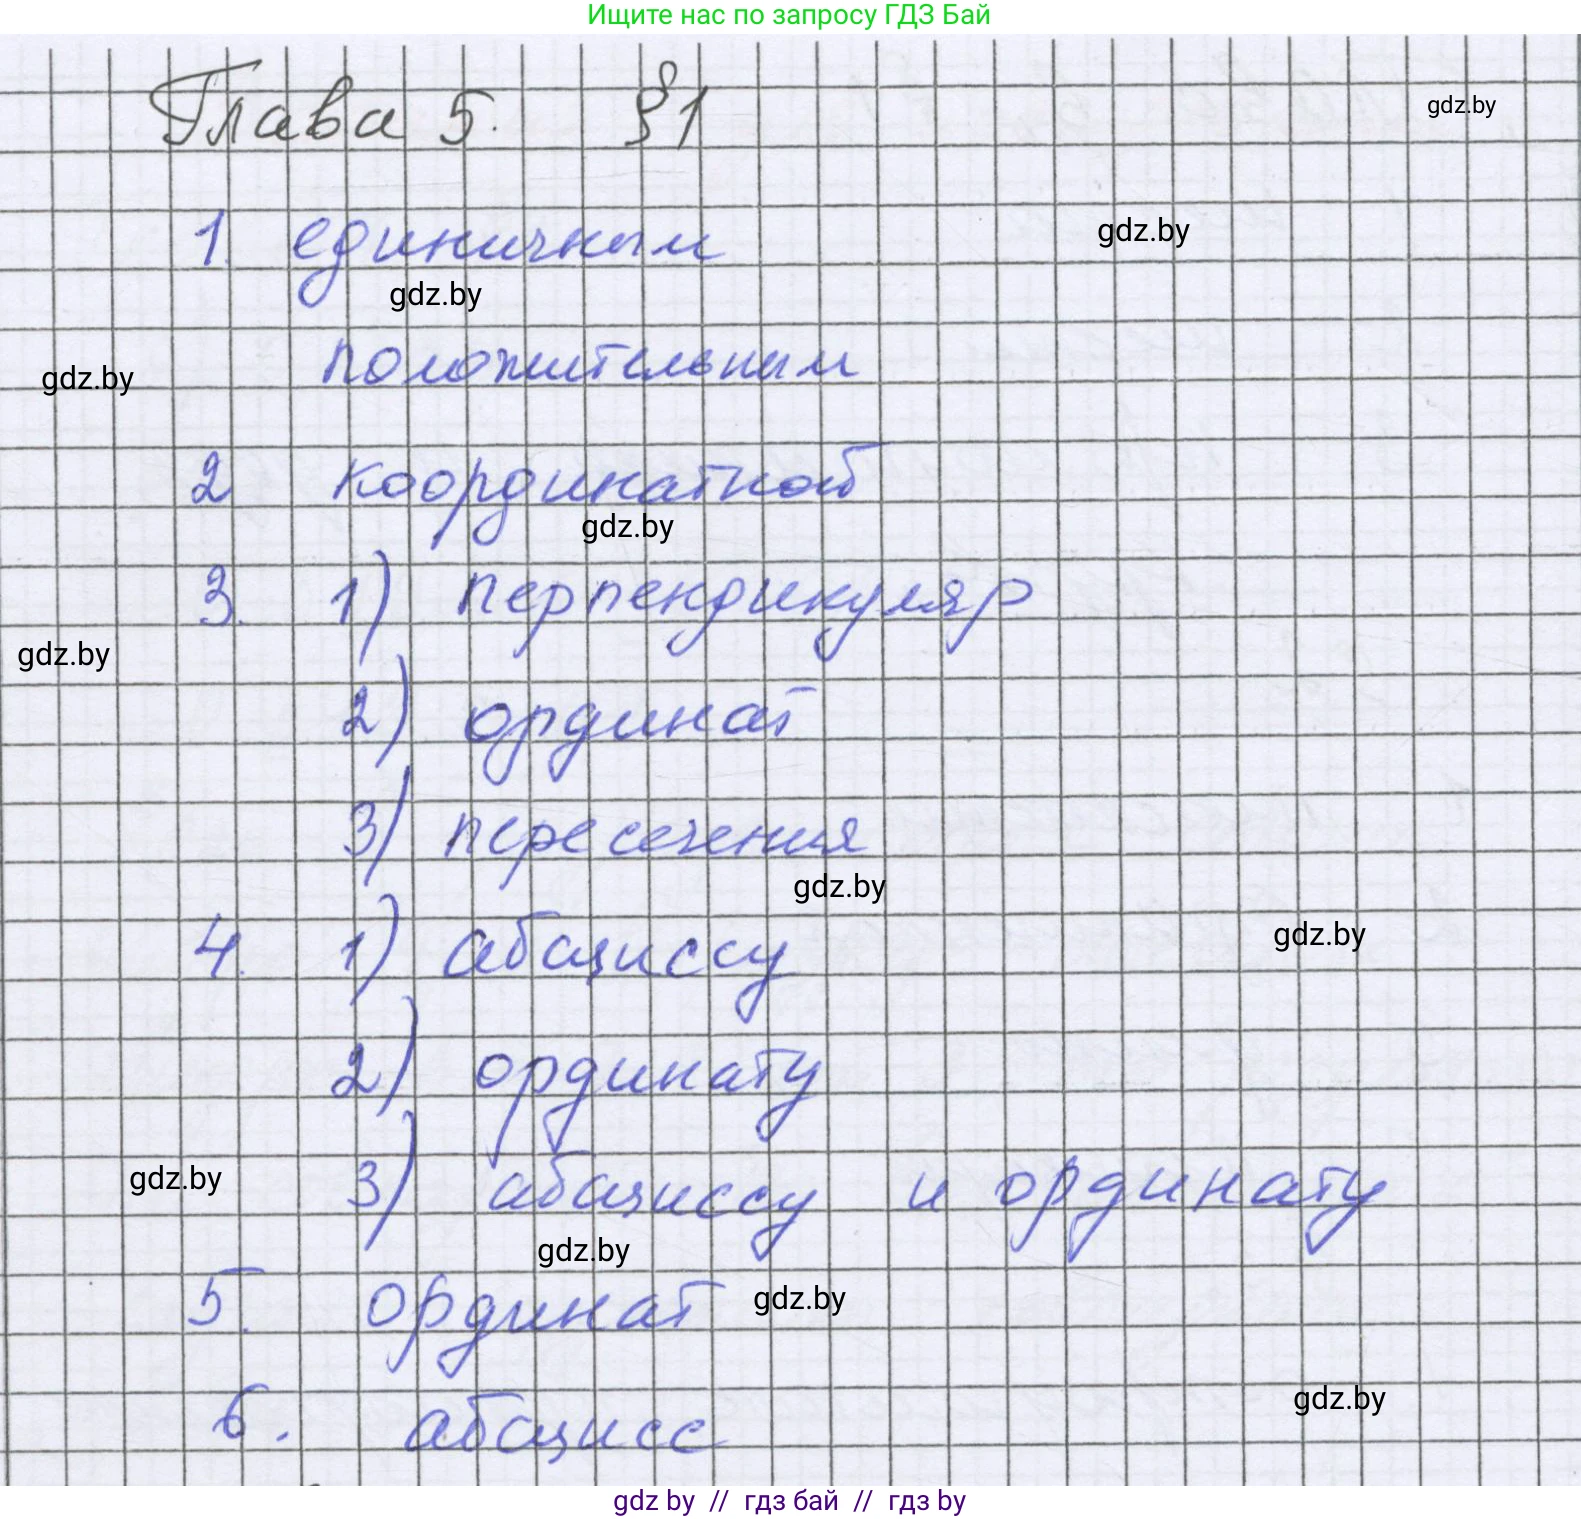 Ищите нас по запросу ГДЗ Бай
Глава 5. §1
gdz.by
1. единичным
gdz.by
gdz.by
положительным
gdz.by
2 координатной
gdz.by
3. 1) перпендикуляр
gdz.by
2) ординат
3) пересечения
gdz.by
4. 1) абсциссу
gdz.by
2) ординату
3) абсциссу и ординату
gdz.by
gdz.by
5. ординат
gdz.by
6. абсцисс
gdz.by
gdz by // гдз бай // гдз by